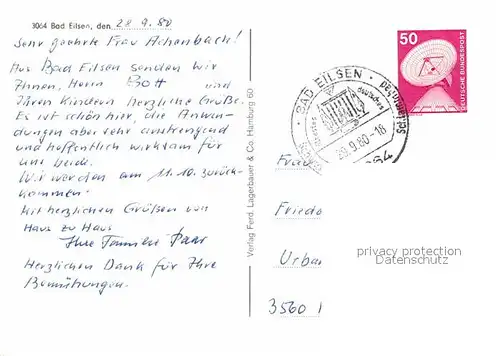 3064 Bad Eilsen, den 28.9.80
Sehr geehrte Frau Achenbach!
Aus Bad Eilsen senden wir
Ihnen, Herrn Bott und
Ihren Kindern herzliche Grüße.
Es ist schön hier, die Anwen-
dungen aber sehr anstrengend
und hoffentlich wirksam für
uns beide.
Wir werden am 11.10. zurück-
kommen.
Mit herzlichen Grüßen von
Haus zu Haus
Ihre Familie Paar
Herzlichen Dank für Ihre
Bemühungen.
Verlag Ferd. Lagerbauer & Co. Hamburg 60
50
DEUTSCHE BUNDESPOST
BAD EILSEN
deutsches
29.9.80-18
3064
Frau
Friedo
Urban
3560
privacy protection
Datenschutz